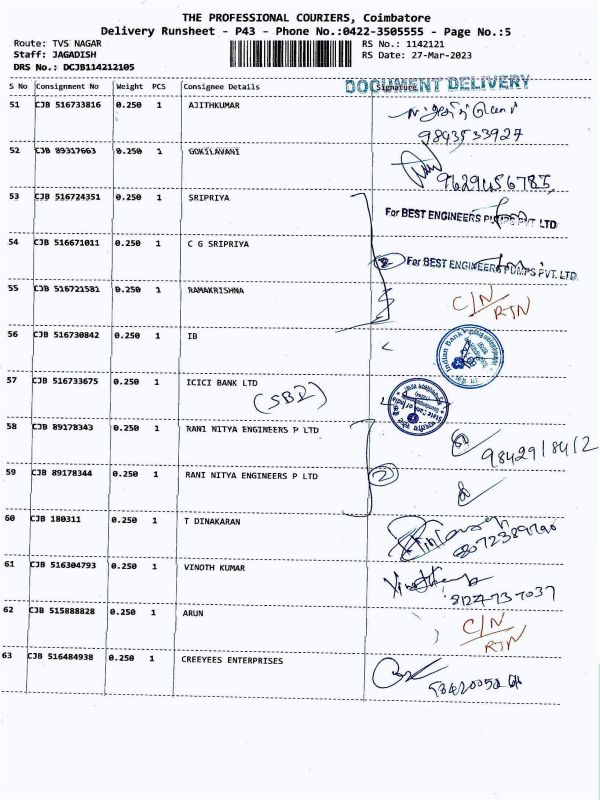 THE PROFESSIONAL COURIERS, Coimbatore
Delivery Runsheet - P43 - Phone No.:0422-3505555 - Page No.:5
Route: TVS NAGAR RS No.: 1142121
Staff: JAGADISH RS Date: 27-Mar-2023
DRS No.: DCJB114212105
DOCUMENT DELIVERY
S No Consignment No Weight PCS Consignee Details Signature
51 CJB 516733816 0.250 1 AJITHKUMAR
9843533927
52 CJB 89317663 0.250 1 GOKILAVANI
9629456785
53 CJB 516724351 0.250 1 SRIPRIYA
For BEST ENGINEERS PUMPS PVT LTD
54 CJB 516671011 0.250 1 C G SRIPRIYA
2 For BEST ENGINEERS PUMPS PVT. LTD.
55 CJB 516721581 0.250 1 RAMAKRISHNA C/N
RTN
56 CJB 516730842 0.250 1 IB
Indian Bank
57 CJB 516733675 0.250 1 ICICI BANK LTD
(SBI)
State Bank of India
58 CJB 89178343 0.250 1 RANI NITYA ENGINEERS P LTD
9842918412
59 CJB 89178344 0.250 1 RANI NITYA ENGINEERS P LTD 2
60 CJB 180311 0.250 1 T DINAKARAN
61 CJB 516304793 0.250 1 VINOTH KUMAR
8124737037
62 CJB 515888828 0.250 1 ARUN C/N
RTN
63 CJB 516484938 0.250 1 CREEYEES ENTERPRISES